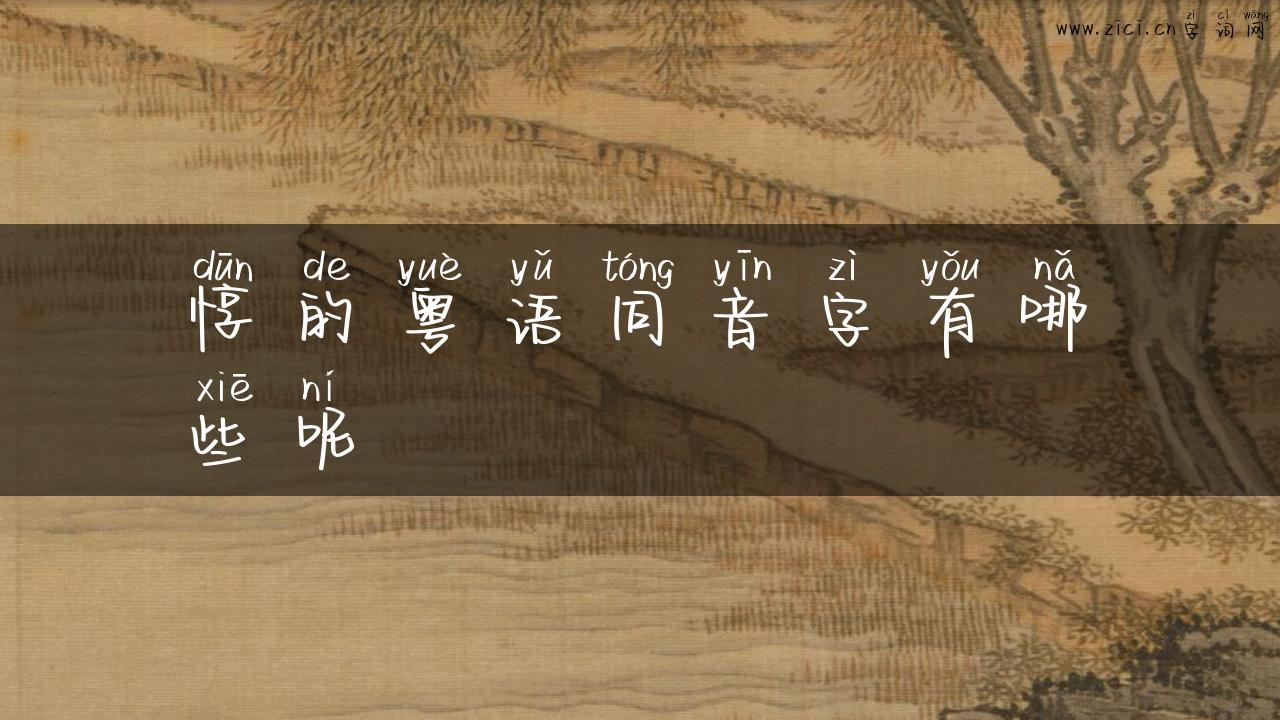 zì cí wǎng
www.zici.cn字词网
dūn de yuè yǔ tóng yīn zì yǒu nǎ
惇的粤语同音字有哪
xiē ní
些呢